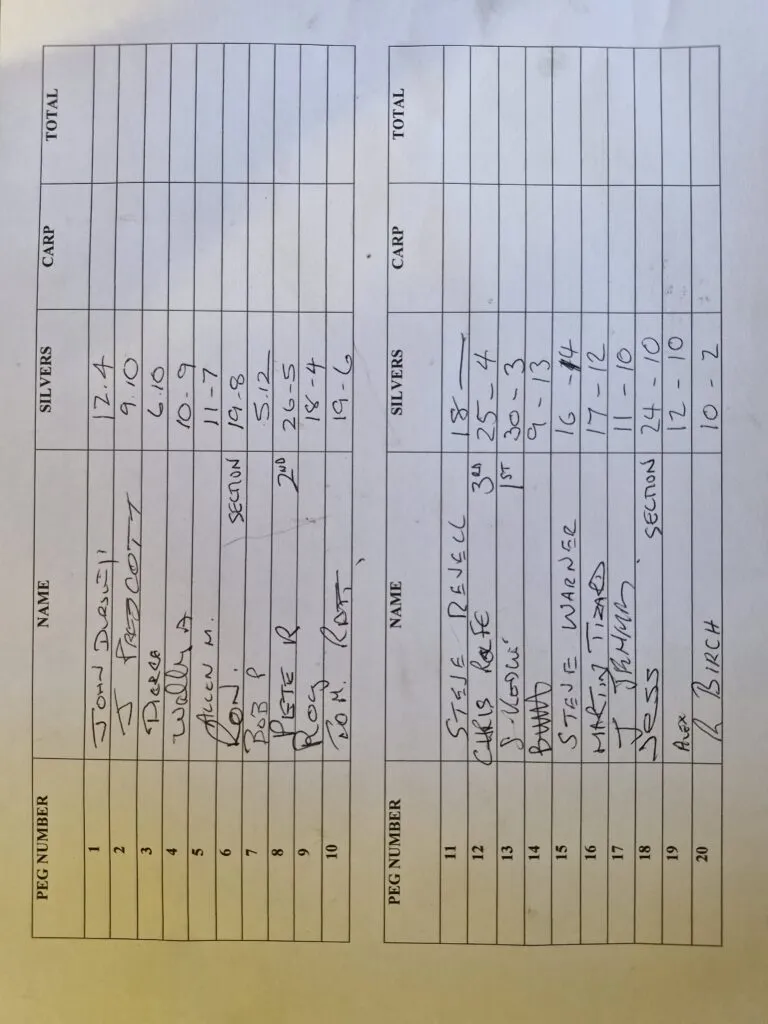 PEG NUMBER NAME SILVERS CARP TOTAL
1 JOHN 12.4
2 J PRESCOTT 9.10
3 6.10
4 Wally A 10-9
5 ALLEN M. 11-7
6 RON. SECTION 19.8
7 BOB P 5.12
8 PETE R 2ND 26-5
9 ROY 18-4
10 TOM. 19-6
PEG NUMBER NAME SILVERS CARP TOTAL
11 STEVE REVELL 18 —
12 CHRIS ROLFE 3RD 25-4
13 1ST 30-3
14 9-13
15 STEVE WARNER 16-14
16 MARTIN TIZARD 17-12
17 J JARMAN 11-10
18 JESS SECTION 24-10
19 ALEX 12-10
20 R BIRCH 10-2